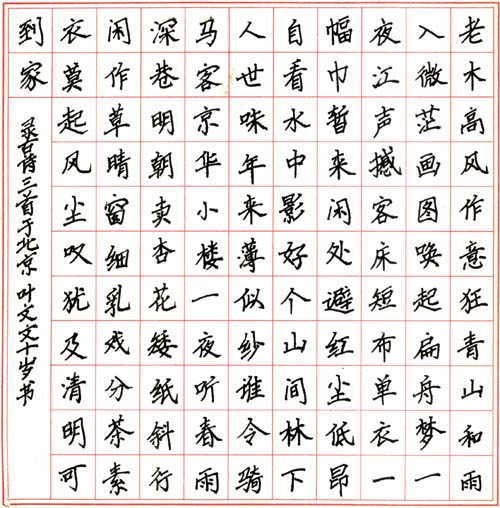 老木高风作意狂青山和雨
入微茫画图唤起扁舟梦一
夜江声撼客床短布单衣一
幅巾暂来闲处避红尘低昂
自看水中影好个山间林下
人世味年来薄似纱谁令骑
马客京华小楼一夜听春雨
深巷明朝卖杏花矮纸斜行
闲作草晴窗细乳戏分茶素
衣莫起风尘叹犹及清明可
到家
录古诗三首于北京 叶文文十岁书